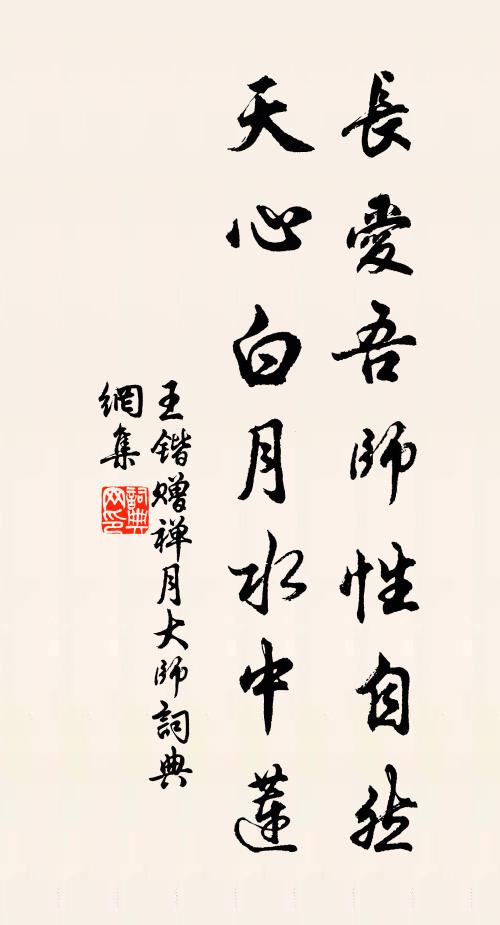 長愛吾師性自然
天心白月水中蓮
王鍇贈禅月大師詞典
網集
詞典
网印